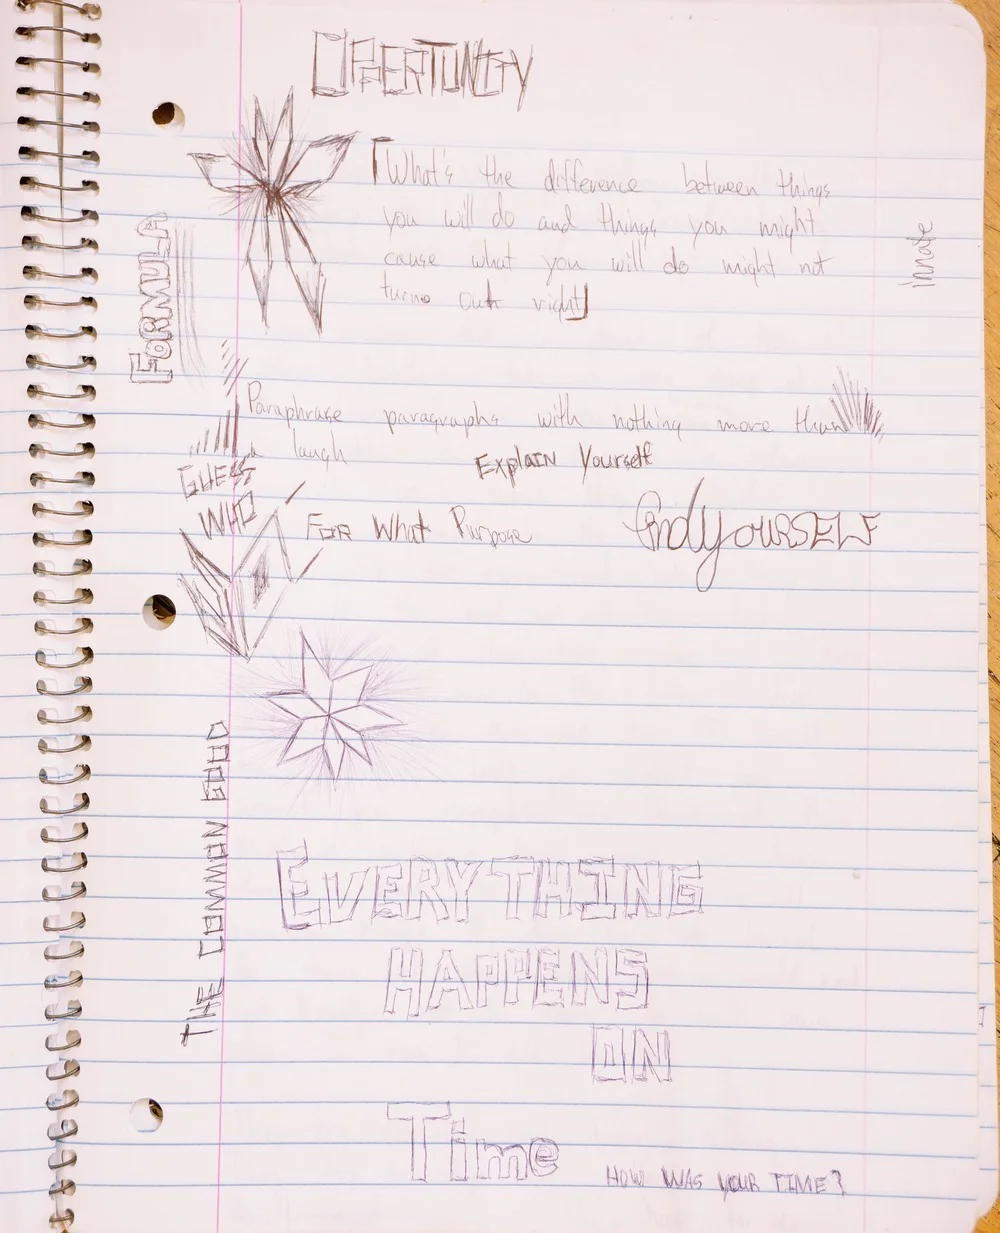 OPPERTUNITY
What's the difference between things
you will do and things you might
cause what you will do might not
turno out right
innate
FORMULA
Paraphrase paragraphs with nothing more than
a laugh
Explain Yourself
GUESS
WHO
For What Purpose
findyourself
THE COMMON GOOD
EVERYTHING
HAPPENS
ON
Time
HOW WAS YOUR TIME?